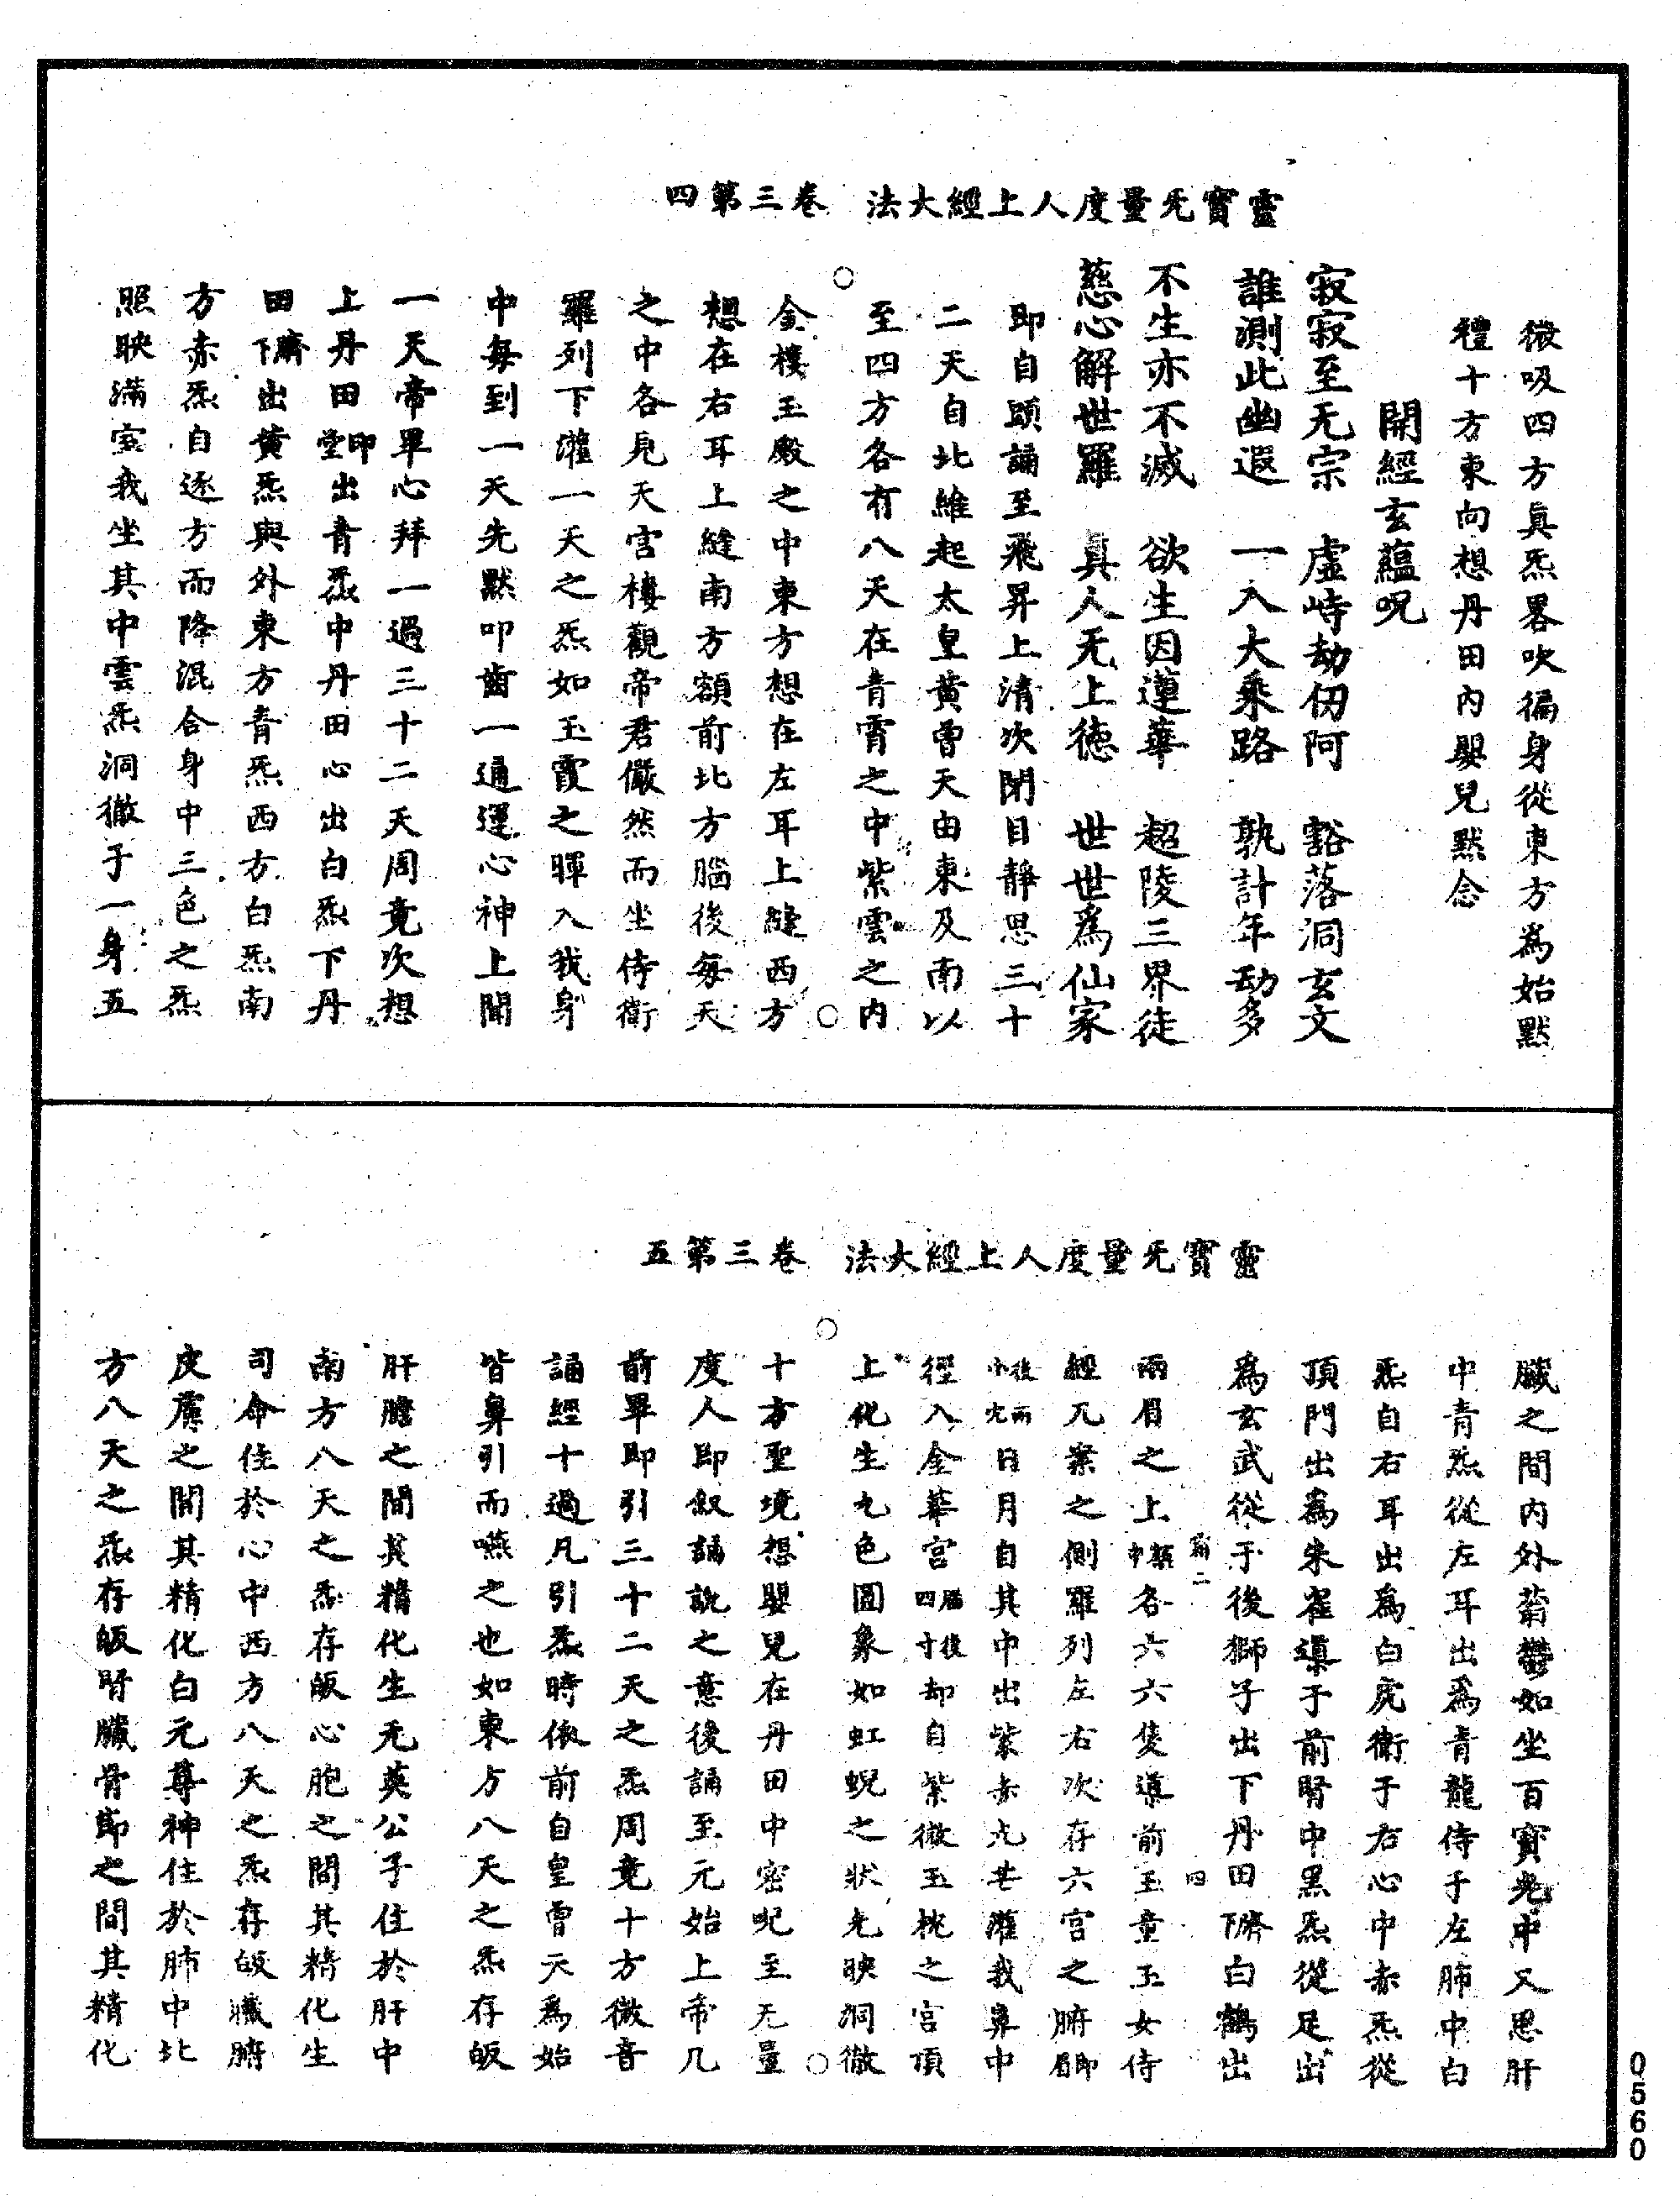 靈寶无量度人上經大法　卷三第四
微吸四方眞炁畧吹徧身從東方爲始默
禮十方東向想丹田內嬰兒默念
開經玄蘊呪
寂寂至无宗　虛峙劫仞阿　豁落洞玄文
誰測此幽遐　一入大乘路　孰計年劫多
不生亦不滅　欲生因蓮華　超陵三界徒
慈心解世羅　真人无上德　世世爲仙家
即自頭誦至飛昇上清次閉目靜思三十
二天自北維起太皇黃曾天由東及南以
至四方各有八天在青霄之中紫雲之內
金樓玉殿之中東方想在左耳上縫西方
想在右耳上縫南方額前北方腦後每天
之中各見天宮樓觀帝君儼然而坐侍衛
羅列下灌一天之炁如玉霞之暉入我身
中每到一天先默叩齒一通運心神上聞
一天帝畢心拜一過三十二天周竟次想
上丹田即堂出青炁中丹田心出白炁下丹
田臍下出黃炁與外東方青炁西方白炁南
方赤炁自逐方而降混合身中三色之炁
照映滿室我坐其中雲炁洞徹于一身五
靈寶无量度人上經大法　卷三第五
臟之間內外蓊鬱如坐百寶光中又思肝
中青炁從左耳出爲青龍侍于左肺中白
炁自右耳出爲白虎衛于右心中赤炁從
頂門出爲朱雀導于前腎中黑炁從足出
爲玄武從于後獅子出下丹田臍下白鶴出
兩眉之上額中各六六隻導前玉童玉女侍
經几案之側羅列左右次存六宮之腑即眉
後兩小光日月自其中出紫赤光芒灌我鼻中
徑入金華宮腦後四寸却自紫微玉枕之宮頂
上化生九色圓象如虹蜺之狀光映洞徹
十方聖境想嬰兒在丹田中密呪至无量
度人即叙誦說之意後誦至元始上帝几
前畢即引三十二天之炁周竟十方微音
誦經十過凡引炁時依前自皇曾天爲始
皆鼻引而嚥之也如東方八天之炁存皈
肝膽之間其精化生无英公子住於肝中
南方八天之炁存皈心胞之間其精化生
司命住於心中西方八天之炁存皈臟腑
皮膚之間其精化白元尊神住於肺中北
方八天之炁存皈腎臟骨節之間其精化
0560